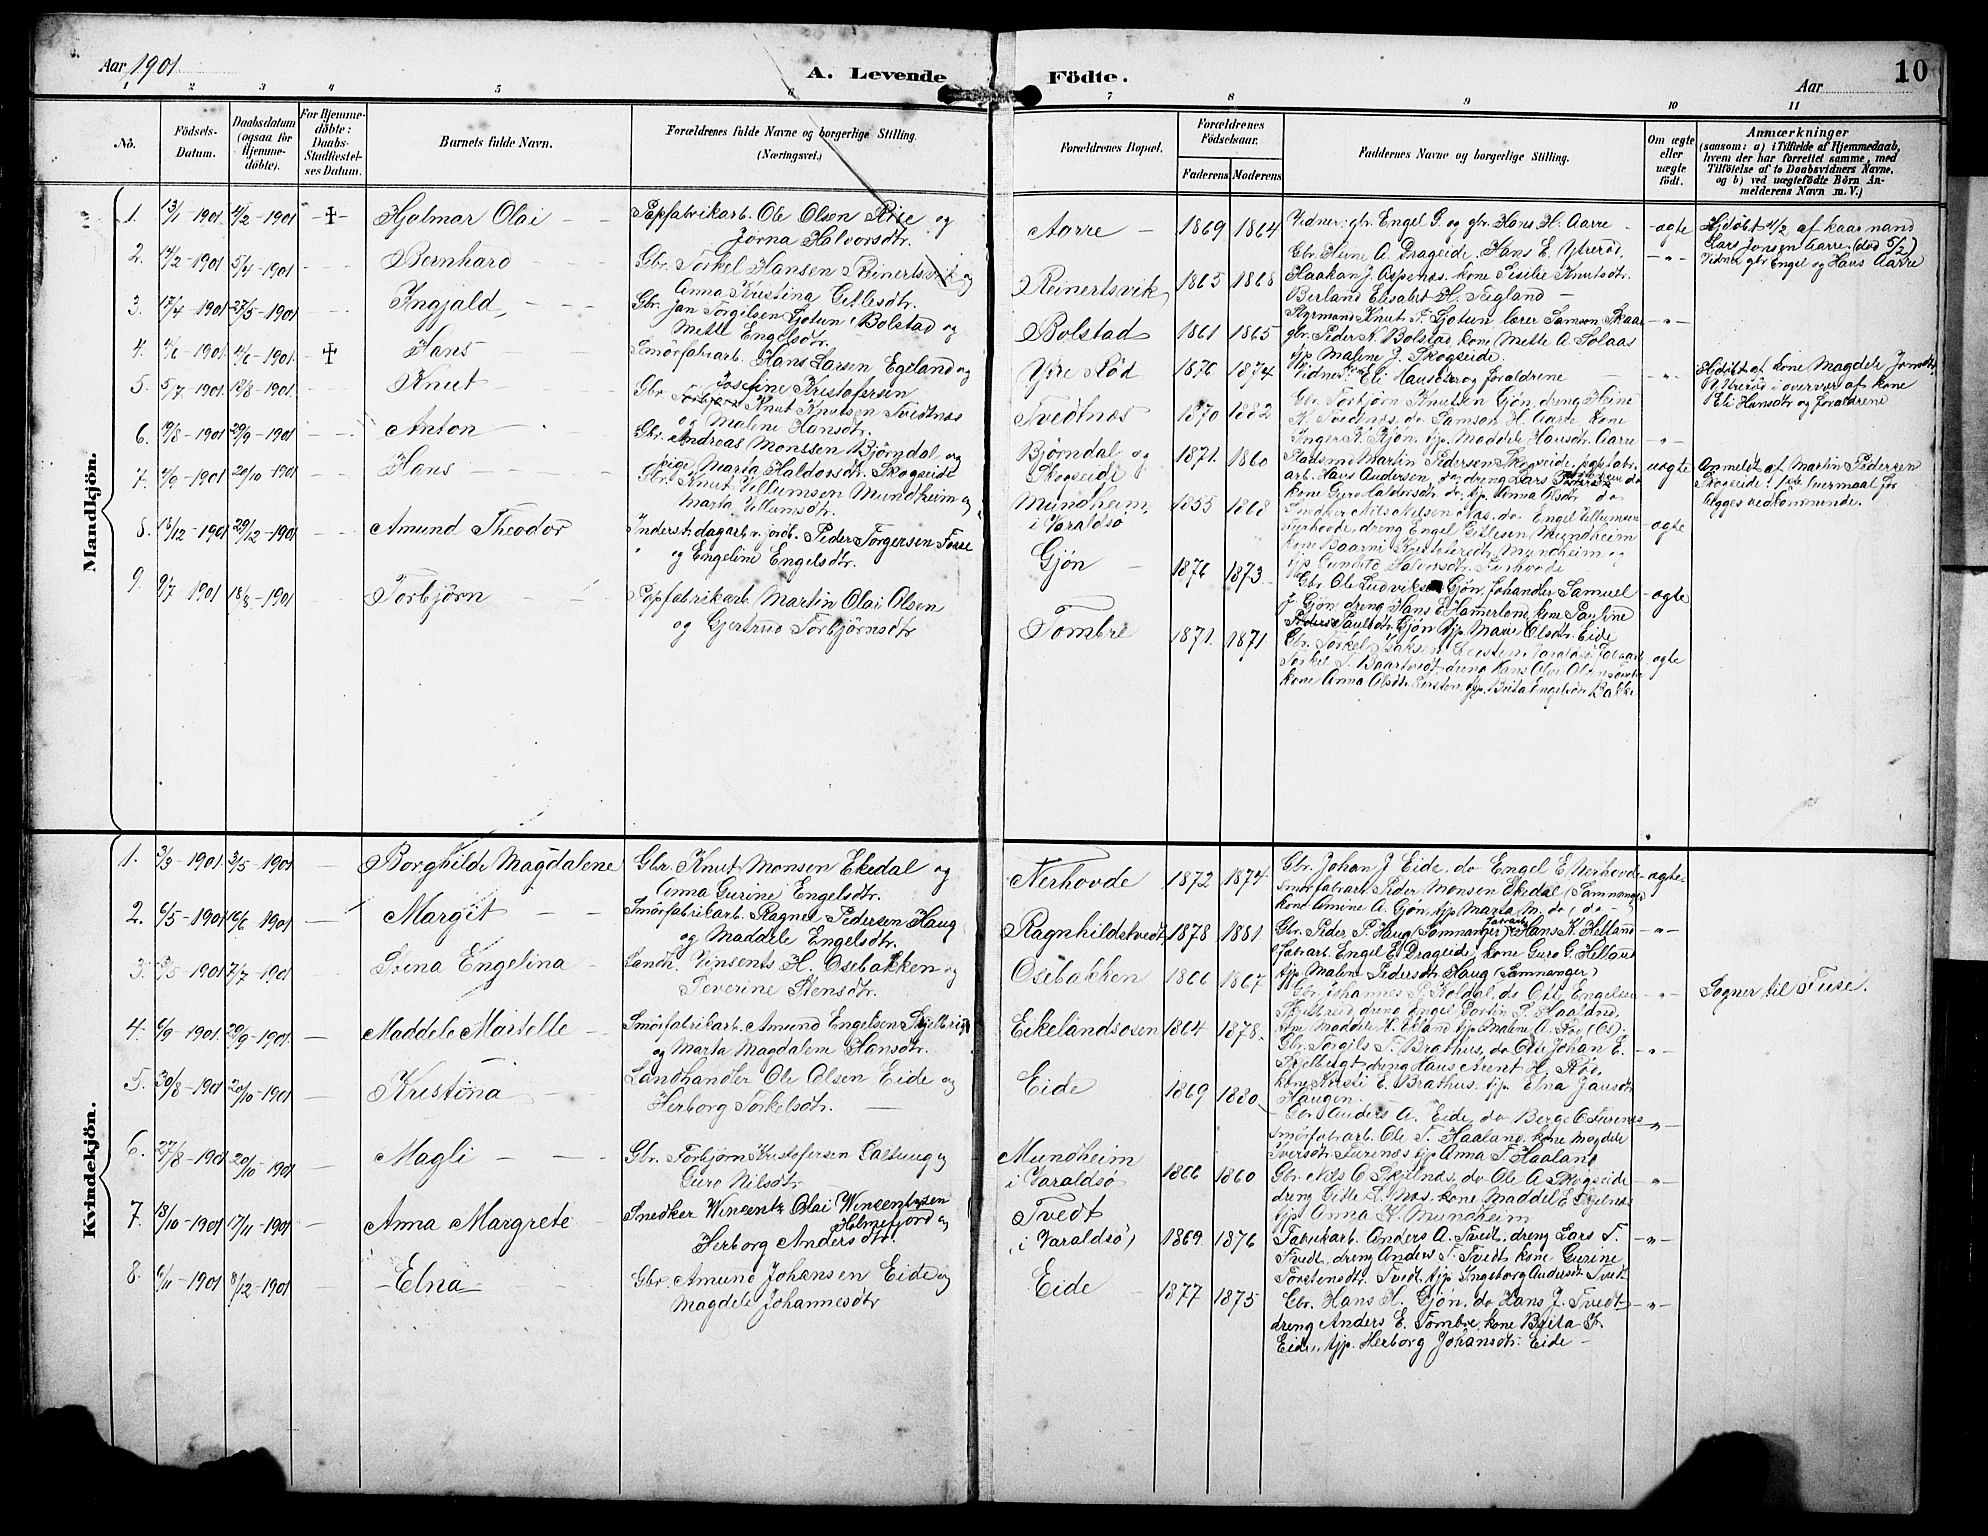 Aar 1901
A. Levende Födte.
Aar
10
1 2 3 4 5 6 7 8 9 10 11
No.
Födsels-Datum.
Daabsdatum (ogsaa for Hjemme-döbte).
For Hjemme-döbte: Daabs-Stadfæstel-ses Datum.
Barnets fulde Navn.
Forældrenes fulde Navne og borgerlige Stilling.
(Næringsvei.)
Forældrenes Bopæl.
Forældrenes Födselsaar.
Faderens Moderens
Faddernes Navne og borgerlige Stilling.
Om ægte eller uægte födt.
Anmærkninger
(saasom: a) i Tilfælde af Hjemmedaab, hvem der har forrettet samme, med Tilföielse af to Daabsvidners Navne, og b) ved uægtefödte Börn An-melderens Navn m. V.)
Mandkjön.
1. 13/1-1901 4/2-1901 Hjalmar Olai
Papfabrikarb. Ole Olsen Röse og
Jörna Halvorsdtr.
Aarre 1869 1864
Vidner: gbr. Engel G. og gbr. Hans H. Aarre
ægte
Hjdöbt 4/2 af kaarmand
Lars Jonsen Aarre (död 5/2)
Vidner gbr Engel og Hans Aarre
2. 14/2-1901 5/4-1901 Bernhard
Gbr. Torkel Hansen Reinertsvik og
Anna Kristina Gitlesdtr.
Reinertsvik 1865 1868
Gbr. Heine A. Drageide, Hans E. Ytreröd
Haakon J. Aspenæs, kone Sisilie Knutsdtr.
Berland Elisabet H. Tegland
3. 17/4-1901 27/5-1901 Ingjald
Gbr. Jan Torgilsen Gjotun (Bolstad og
Mette Engelsdtr.
Bolstad 1861 1865
Styrmand Knut T. Gjotun, lærer Samson Skaar
gbr. Peder N. Bolstad, kone Mette A. Solaas
tjp Malene J. Skogseide
4. 4/6-1901 4/6-1901 Hans
Smörfabrarb. Hans Larsen Egeland og
Josefine Kristofersen
Ytre Röd 1876 1874
Vidner: Eli Hansdtr og foraldrene
Hjdöbt af kone Magdele Jonsdtr
Ytreröd i overvær af kone
Eli Hansdtr og foraldrene
5. 5/7-1901 18/8-1901 Knut
Gbr. Knut Knutsen Tvedtnæs
og Malene Hansdtr.
Tvedtnæs 1870 1882
Gbr. Torbjörn Knutsen Gjön, dreng Heine
K. Tvedtnæs, do Samson H. Aarre kone
Inger K. Gjön, tjp. Maddele Hansdtr. Aarre
6. 19/8-1901 29/9-1901 Anton
Gbr. Andreas Monssen Björndal og
pige Marta Haldorsdtr. Skogseide
Björndal og
Skogseide
1871. 1860
Pladsmd Martin Pedersen Skogseide, papfabr.
arb. Hans Andersen, do, dreng Lars do
kone Guro Haldorsdtr. do, tjp. Anna Olsdtr. do.
uægte
Anmeldt af Martin Pedersen
Skogseide: 1ste leiermaal for
begges vedkommende.
7. 7/9-1901 20/10-1901 Hans
Gbr. Knut Villumsen Mundheim og
Marta Villumsdtr.
Mundheim,
i Varaldsö
1855 1868
Snedker Nils Nilsen Næs, do. Engel Villumsen
dreng Engel Gitlesen Mundheim
kone Baarni Kristofersdtr. Mundheim og
tjp. Gunhild Halvorsdtr.
ægte
8. 15/12-1901 29/12-1901 Amund Theodor
Inderst. dagarb v. jordb. Peder Torgersen Fusse
og Engeline Engelsdtr.
Gjön 1876 1873
Gbr Ole Ludviksen Gjön, Johander Samuel
J. Gjön, dreng Hans E. kone Pauline
Paulsdtr. Gjön tjp. Marie Olsdtr. Eide
ægte
9. 9/7 1901 18/8-1901 Torbjörn
Papfabrikarb. Martin Olai Olsen
og Gjertrud Torbjörnsdtr
Tombre 1871. 1871
Gbr. Torkel Isaksen
Torkel T. Baartvedt, dreng Hans Olai
kone Anna Olsdtr. tjp. Brita Engelsdtr. Bakke
ægte
Kvindekjön.
1. 3/3-1901 3/5-1901 Borghilde Magdalene
Gbr. Knut Monsen Ekedal og
Anna Gurine Engelsdtr.
Nerhovde 1872 1874
Gbr. Johan J. Eide, do Engel E. Nerhovde
Smörfabrarb Peder Monsen Ekedal (Samnanger)
kone Amine A. Gjön, tjp. Marta M. do (do)
ægte
2. 6/5-1901 16/6 1901 Margit
Smörfabrikarb. Ragner Pedersen Haug
og Maddele Engelsdtr.
Ragnhildstvedt 1878 1881
Gbr. Peder P. Haug (Samnanger) Hans K. Helland
fabrarb. Engel E. Drageide, kone Guro G. Helland
tjp. Malene Pedersdtr. Haug (Samnanger)
3. 1901 7/7 1901 Srena Engelina
Landh. Vinsents H. Osebakken og
Severine Stensdtr.
Osebakken 1866 1867
Gbr. Johannes P. Koldal, do Otte Engelsen
Skjelbreid, dreng Engel Portin P. Haaldne
kne Maddele H. Ekland, tjp. Malene A. Foe (Os).
Sogner til Fuse.
4. 6/9-1901 29/9-1901 Maddele Martelle
Smörfabrikarb. Amund Engelsen
og Marta Magdalene Hansdtr.
Eikelandsosen 1864 1878
Gbr. Torgils T. Brathus, do Ole Johan E.
dreng Hans Arent H. Röe,
kone Kirsti E. Brathus, tjp. Elna Jansdtr
Haugen.
5. 30/8-1901 20/10-1901 Kristina
Landhandler Ole Olsen Eide og
Herborg Torkelsdtr.
Eide 1869 1880
Gbr. Anders A. Eide, do Berge O. Furenæs
Smörfabrarb. Ole T. Haaland, kone Magdele
Iversdtr. Furenæs tjp Anna T. Haaland
6. 27/8-1901 20/10-1901 Magli
Gbr. Torbjörn Kristofersen Galtung og
Guro Nilsdtr
Mundheim
i Varaldsö
1866 1860
Gbr. Nils O. Skjelnæs, do Ole A. Skogseide
dreng Gitle L. Næs, kone Maddel E. Skjelnæs
tjp. Anna K. Mundheim
7. 18/10-1901 17/11-1901 Anna Margrete
Snedker Wincents Olai Wincentsen
Holmefjord og
Herborg Andersdtr.
Tvedt
(i Varaldsö)
1869 1876
Fabrikarb. Anders A. Tvedt, dreng Lars T.
Tvedt, dreng Anders T. Tvedt, kone Gurine
Torstensdtr. Tvedt tjp. Ingeborg Andersdtr. Tvedt
8. 6/11-1901 8/12-1901 Elna
Gbr. Amund Johansen Eide og
Magdele Johannesdtr
Eide 1877 1875
Gbr. Hans H. Gjön, do Hans J. Tvedt
dreng Anders E. Tombre, kone Brita K.
Eide, tjp. Herborg Johansdtr. Eide